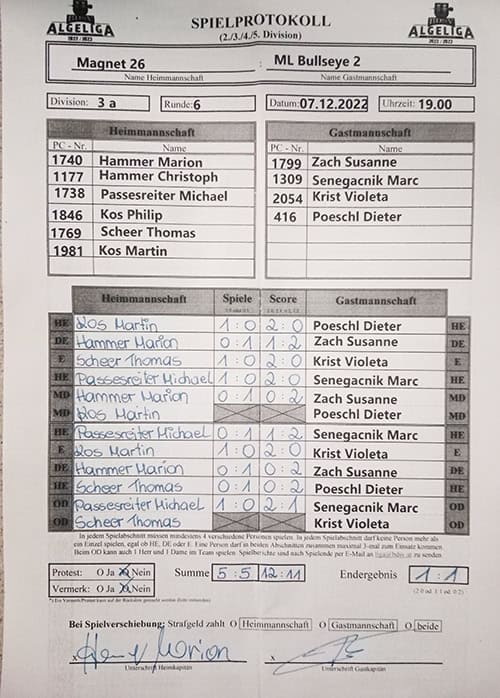 ALGELIGA
2022 / 2023
SPIELPROTOKOLL
(2./3./4./5. Division)
ALGELIGA
2022 / 2023
Magnet 26 : ML Bullseye 2
Name Heimmannschaft Name Gastmannschaft
Division: 3 a Runde: 6 Datum: 07.12.2022 Uhrzeit: 19.00
Heimmannschaft Gastmannschaft
PC - Nr. Name PC - Nr. Name
1740 Hammer Marion 1799 Zach Susanne
1177 Hammer Christoph 1309 Senegacnik Marc
1738 Passesreiter Michael 2054 Krist Violeta
1846 Kos Philip 416 Poeschl Dieter
1769 Scheer Thomas
1981 Kos Martin
Heimmannschaft Spiele Score Gastmannschaft
HE Kos Martin 1 : 0 2 : 0 Poeschl Dieter HE
DE Hammer Marion 0 : 1 1 : 2 Zach Susanne DE
E Scheer Thomas 1 : 0 2 : 0 Krist Violeta E
HE Passesreiter Michael 1 : 0 2 : 0 Senegacnik Marc HE
MD Hammer Marion 0 : 1 0 : 2 Zach Susanne MD
MD Kos Martin Poeschl Dieter MD
HE Passesreiter Michael 0 : 1 1 : 2 Senegacnik Marc HE
E Kos Martin 1 : 0 2 : 0 Krist Violeta E
DE Hammer Marion 0 : 1 0 : 2 Zach Susanne DE
HE Scheer Thomas 0 : 1 0 : 2 Poeschl Dieter HE
OD Passesreiter Michael 1 : 0 2 : 1 Senegacnik Marc OD
OD Scheer Thomas Krist Violeta OD
In jedem Spielabschnitt müssen mindestens 4 verschiedene Personen spielen. In jedem Spielabschnitt darf keine Person mehr als
ein Einzel spielen, egal ob HE, DE oder E. Eine Person darf in beiden Abschnitten zusammen maximal 3-mal zum Einsatz kommen.
Beim OD kann auch 1 Herr und 1 Dame im Team spielen. Spielberichte sind nach Spielende per E-Mail an zu senden.
Protest: O Ja O Nein Summe 5 : 5 12 : 11 Endergebnis 1 : 1
Vermerk: O Ja O Nein (2:0 od. 1:1 od. 0:2)
Bei Spielverschiebung: Strafgeld zahlt O Heimmannschaft O Gastmannschaft O beide
x Hammer Marion x
Unterschrift Heimkapitän Unterschrift Gastkapitän